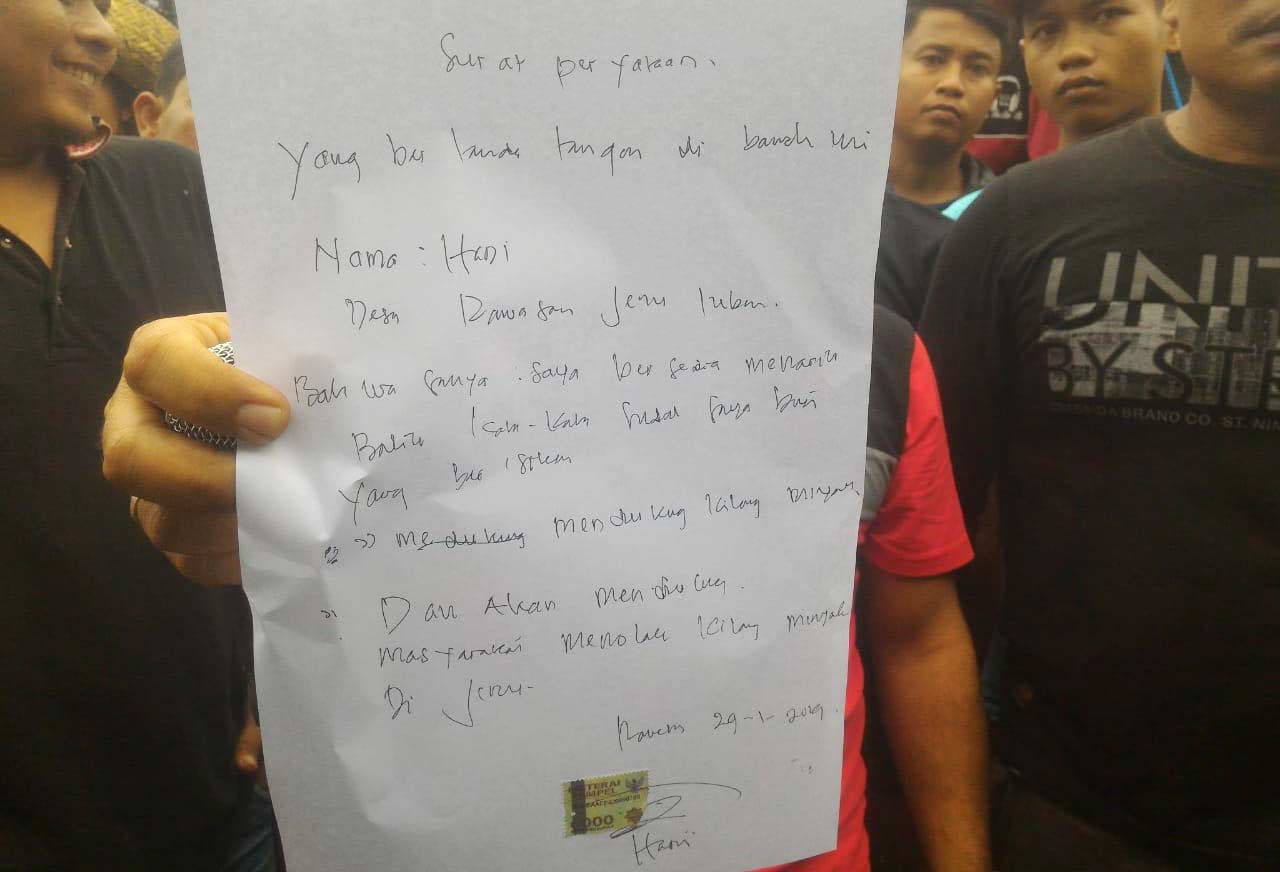 Surat peryataan.
Yang ber tanda tangan di bawah ini
Nama : Hani
Desa Rawasan Jenu Tuban.
Bahwa sanya : saya ber sedia menarik
Balik kata-kata surat saya
yang ber isikan
>> Mendukung mendukung kilang minyak
>> Dan Akan mendukung.
masyarakat menolak kilang minyak
Di Jenu-
29-1-2019.
METERAI
TEMPEL
000
Hani
UNIT
BY STR
BRAND CO. ST. NIN